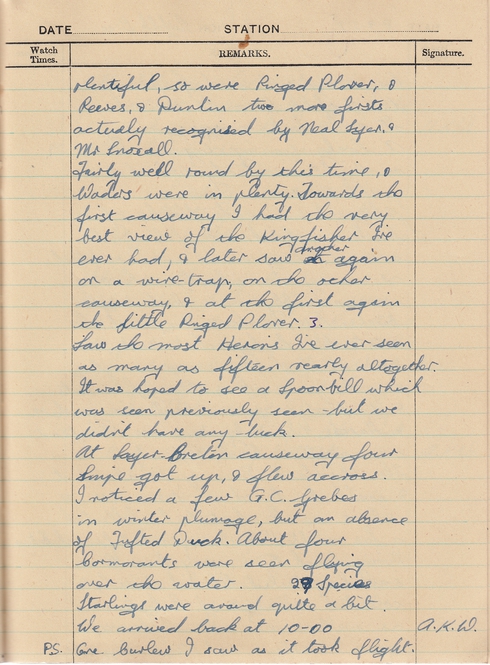 DATE STATION
Watch Times. REMARKS. Signature.
plentiful, so were Ringed Plover, &
Reeves, & Dunlin two more firsts
actually recognised by Neal Layer, &
Mr
Fairly well round by this time, &
Waders were in plenty. Towards the
first causeway I had the very
best view of the Kingfisher I've
ever had, & later saw another again
on a wire-trap, on the other
causeway, & at the first again
the little Ringed Plover. 3.
Saw the most Herons I've ever seen
as many as fifteen nearly altogether.
It was hoped to see a Spoonbill which
was seen previously seen - but we
didn't have any - luck.
At Layer-Breton causeway four
Snipe got up, & flew accross.
I noticed a few G.C. Grebes
in winter plumage, but an absence
of Tufted Duck. About four
Cormorants were seen flying
over the water. 29 Species
Starlings were around quite a bit.
We arrived back at 10-00 A.K.W.
P.S. One Curlew I saw as it took flight.